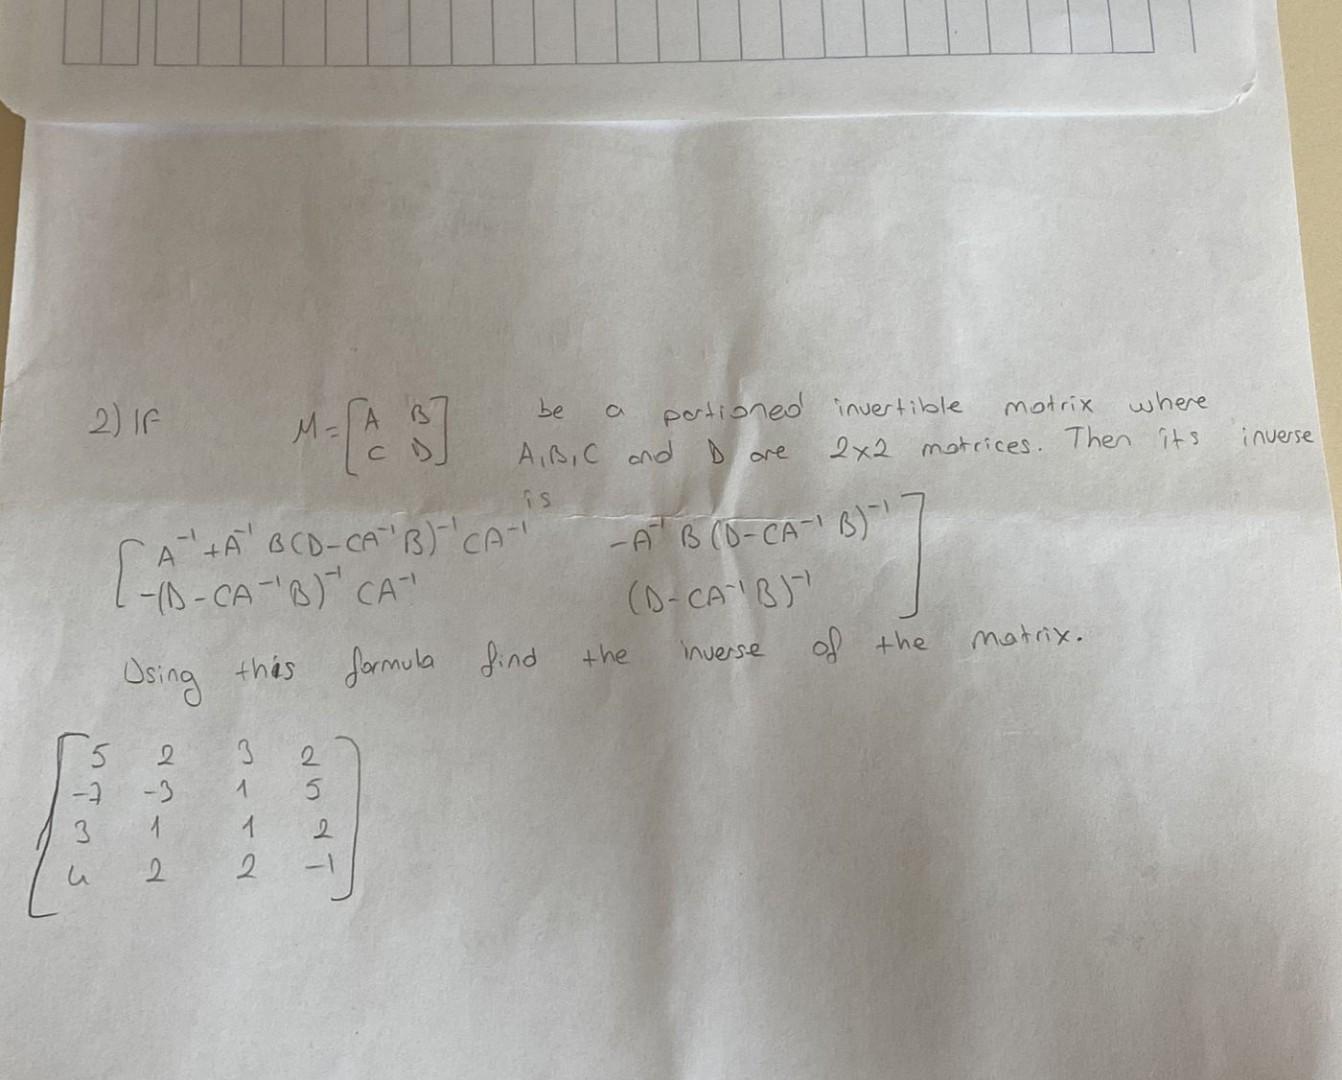 2) IF M = [A B be a portioned invertible matrix where
C D] A, B, C and D are 2x2 matrices. Then its inverse
is
[A⁻¹+A⁻¹ B(D-CA⁻¹B)⁻¹ CA⁻¹ -A⁻¹ B(D-CA⁻¹ B)⁻¹
-(D-CA⁻¹B)⁻¹ CA⁻¹ (D-CA⁻¹B)⁻¹]
Using this formula find the inverse of the matrix.
[5 2 3 2
-7 -3 1 5
3 1 1 2
4 2 2 -1]